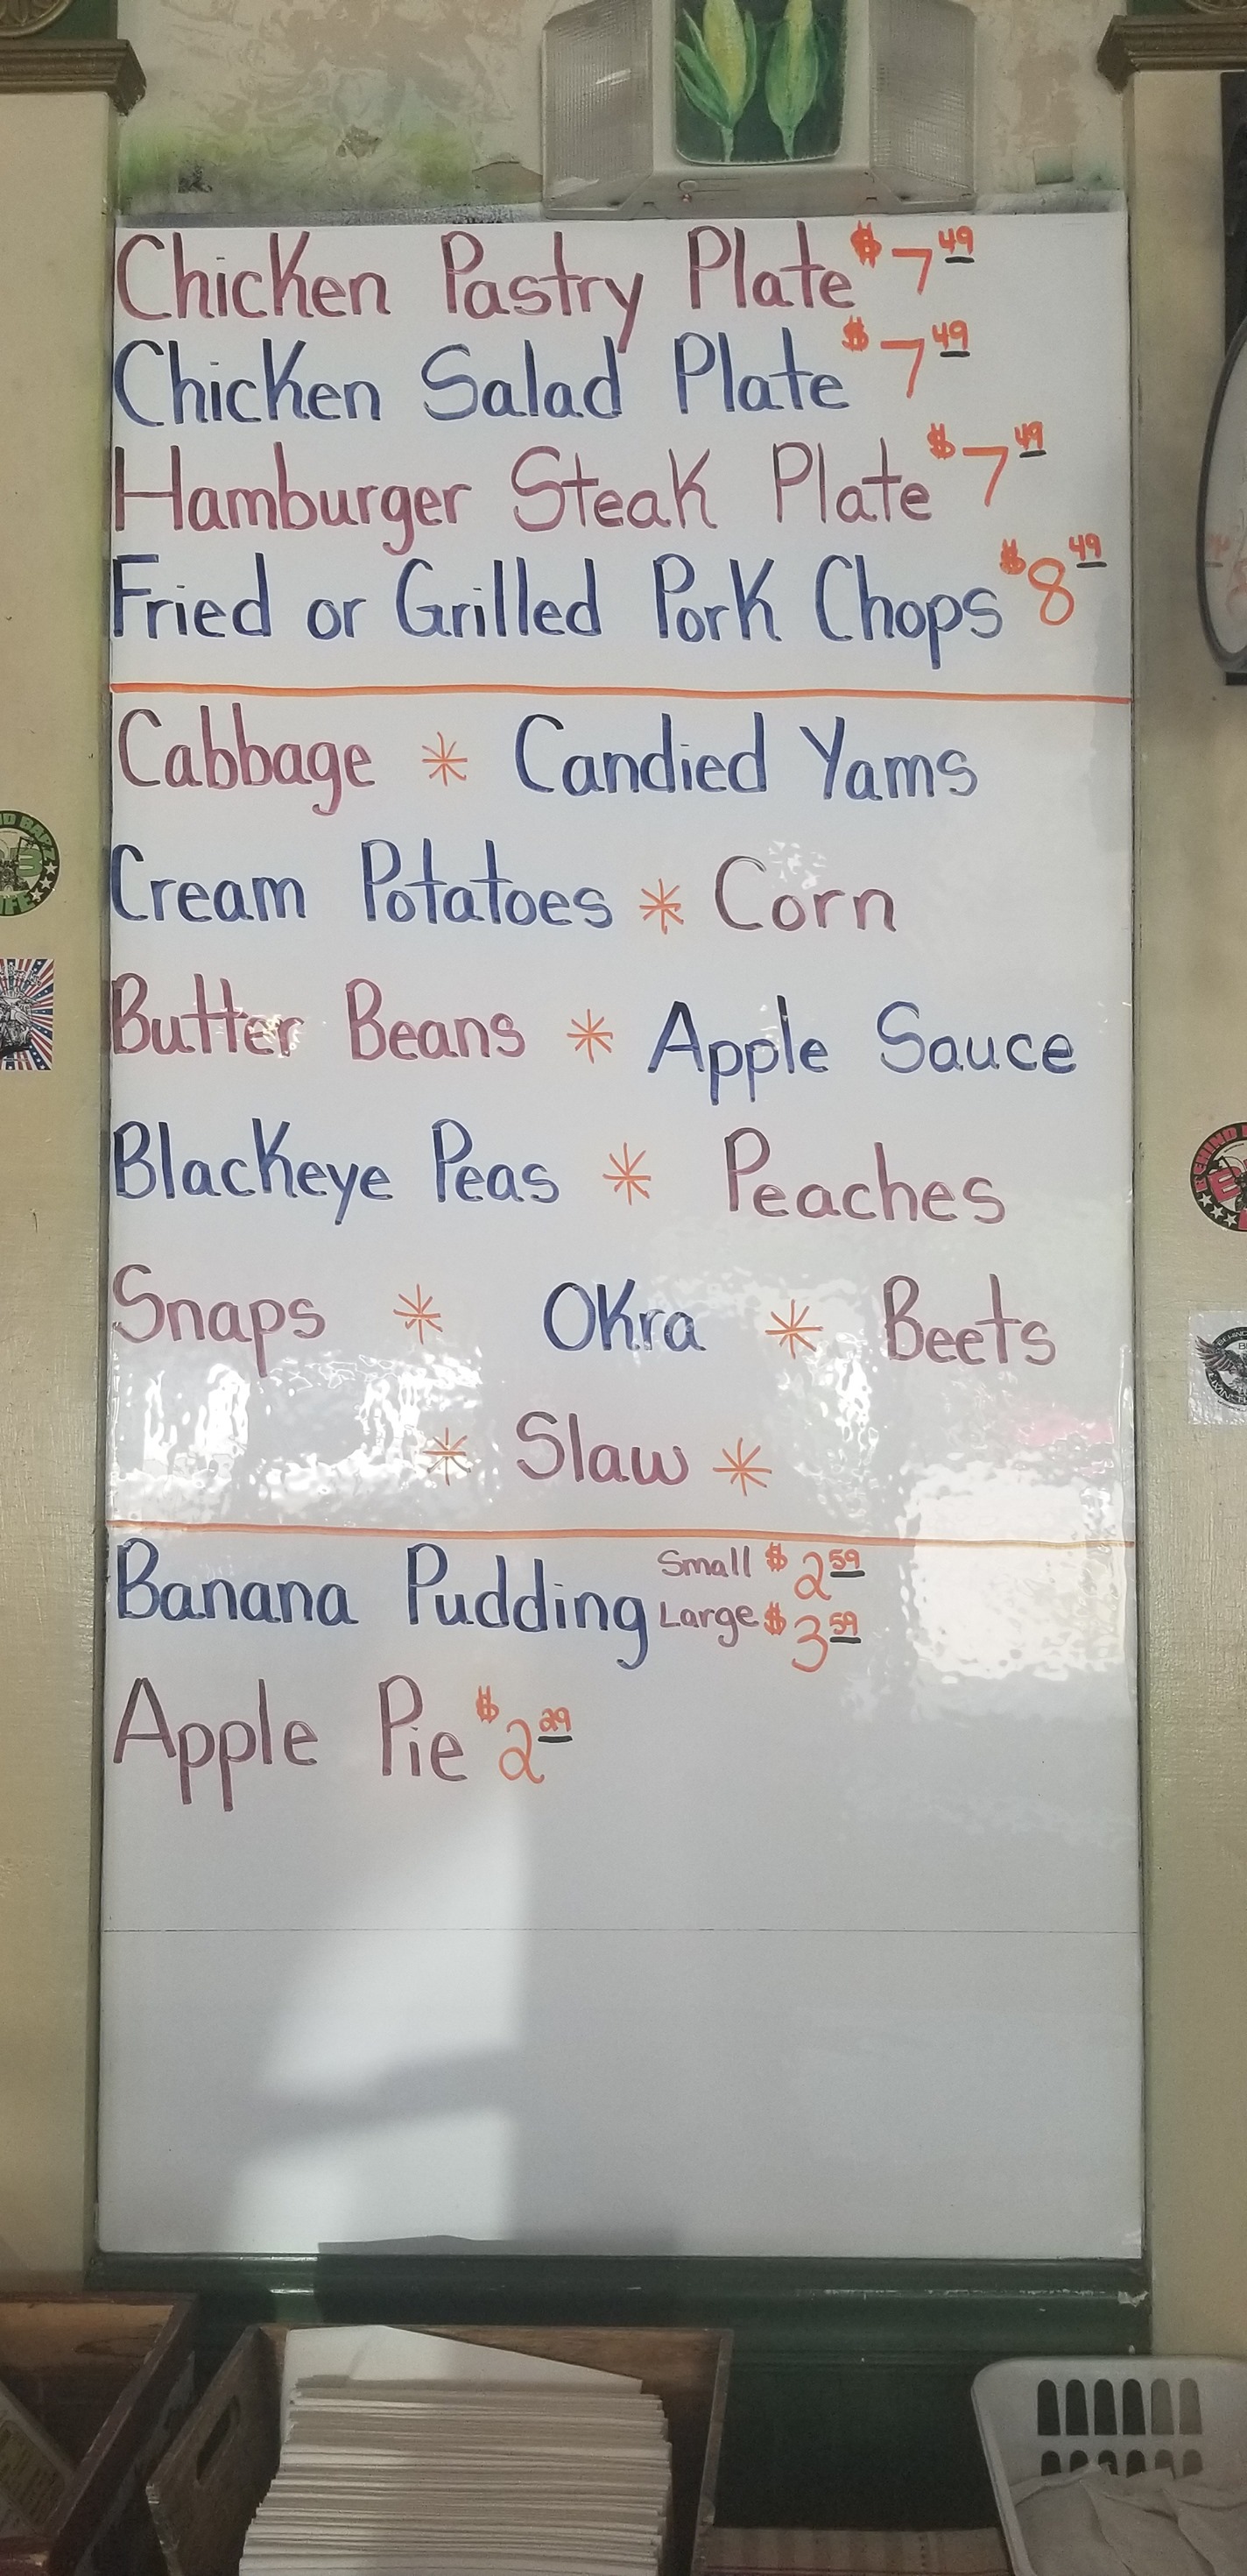 Chicken Pastry Plate $7 49
Chicken Salad Plate $7 49
Hamburger Steak Plate $7 49
Fried or Grilled Pork Chops $8 49
Cabbage * Candied Yams
Cream Potatoes * Corn
Butter Beans * Apple Sauce
Blackeye Peas * Peaches
Snaps * Okra * Beets
* Slaw *
Banana Pudding Small $2 59
Large $3 59
Apple Pie $2 29